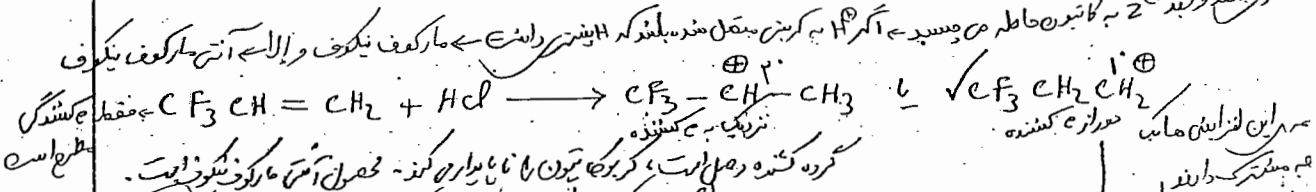 به کاتیون حاصله می چسبد ← اگر H⊕ به کربنی متصل شده باشد که H بیشتری داشت ← مارکوف نیکوف و الا ← آنتی مارکوف نیکوف
CF₃CH = CH₂ + HCl ⟶ CF₃ – CH⊕ – CH₃ یا ✓CF₃CH₂CH₂⊕
2° 1°
← فقط e کشندگی مطرح است
نزدیک به e کشنده دور از e کشنده
گروه کشنده وصل است، کربوکاتیون را ناپایدار می کند. محصول آنتی مارکوف نیکوف است.